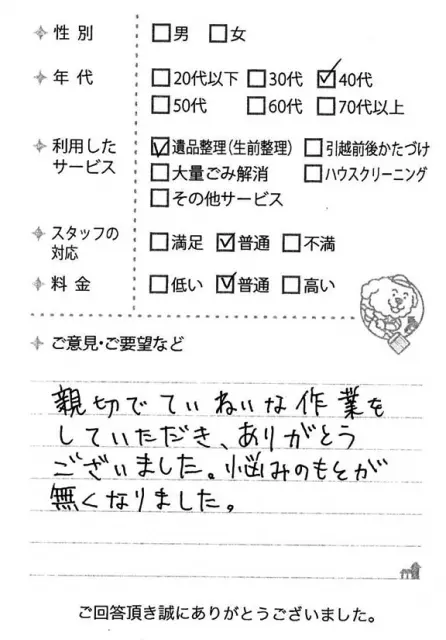 性別 □男 □女
年代 □20代以下 □30代 ☑40代
□50代 □60代 □70代以上
利用したサービス ☑遺品整理(生前整理) □引越前後かたづけ
□大量ごみ解消 □ハウスクリーニング
□その他サービス
スタッフの対応 □満足 ☑普通 □不満
料金 □低い ☑普通 □高い
ご意見・ご要望など
親切でていねいな作業を
していただき、ありがとう
ございました。悩みのもとが
無くなりました。
ご回答頂き誠にありがとうございました。